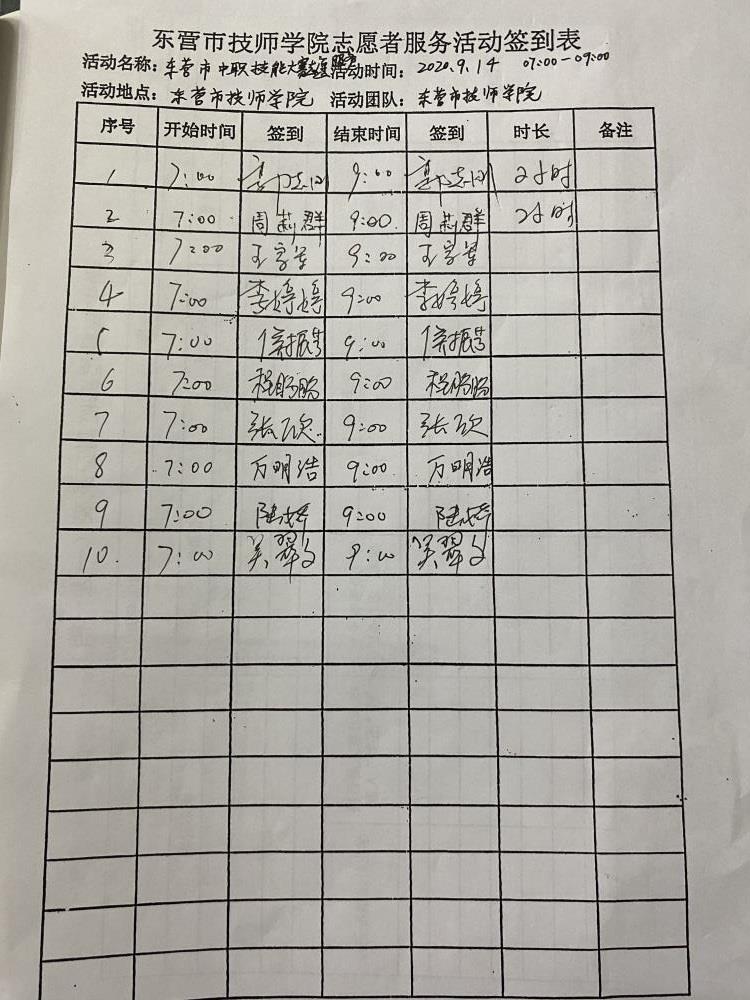 东营市技师学院志愿者服务活动签到表
活动名称：东营市中职技能大赛志愿服务 活动时间：2020.9.14 07:00-09:00
活动地点：东营市技师学院 活动团队：东营市技师学院
序号 开始时间 签到 结束时间 签到 时长 备注
1 7:00 9:00 2小时
2 7:00 周莉群 9:00 周莉群 2小时
3 7:00 9:00
4 7:00 李婷婷 9:00 李婷婷
5 7:00 9:00
6 7:00 程盼盼 9:00 程盼盼
7 7:00 张欣 9:00 张欣
8 7:00 万明浩 9:00 万明浩
9 7:00 9:00
10. 7:00 吴翠文 9:00 吴翠文